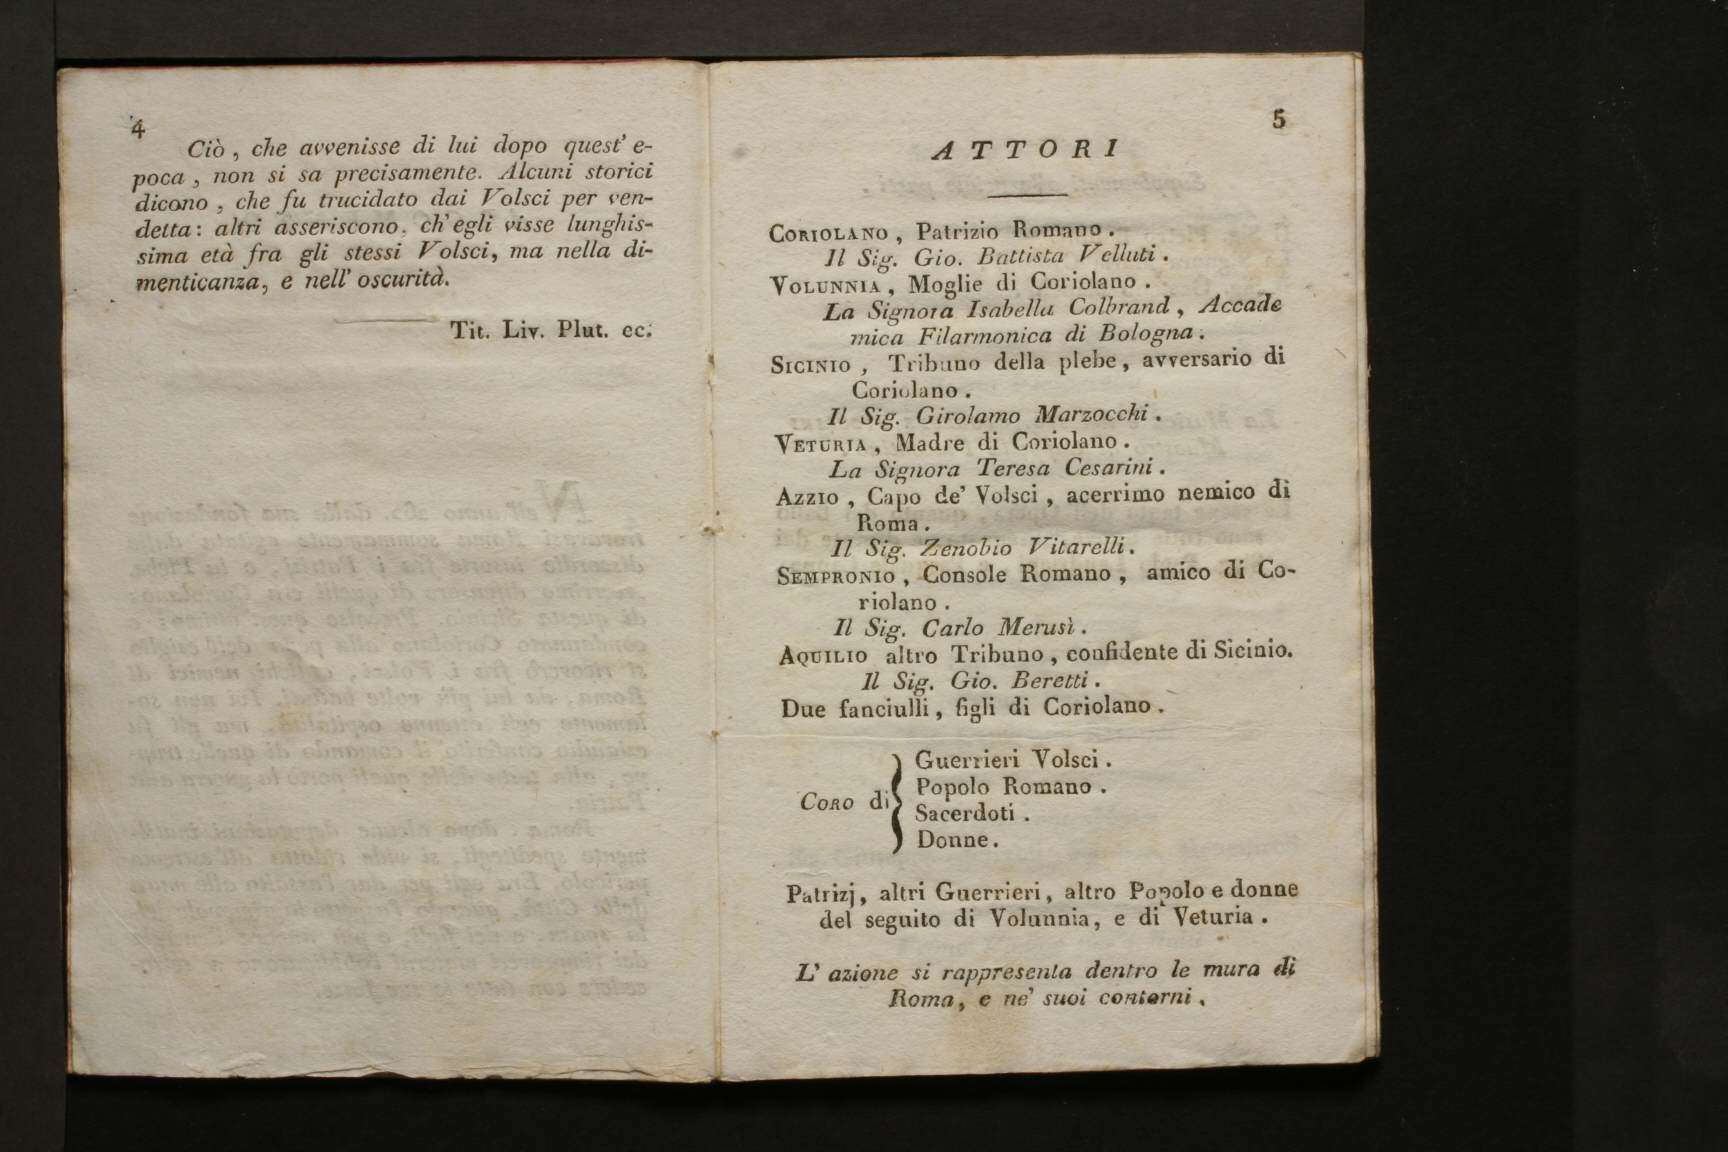 4
Ciò, che avvenisse di lui dopo quest' e-
poca, non si sa precisamente. Alcuni storici
dicono, che fu trucidato dai Volsci per ven-
detta: altri asseriscono, ch'egli visse lunghis-
sima età fra gli stessi Volsci, ma nella di-
menticanza, e nell' oscurità.
Tit. Liv. Plut. ec.
5
ATTORI
CORIOLANO, Patrizio Romano.
Il Sig. Gio. Battista Velluti.
VOLUNNIA, Moglie di Coriolano.
La Signora Isabella Colbrand, Accade
mica Filarmonica di Bologna.
SICINIO, Tribuno della plebe, avversario di
Coriolano.
Il Sig. Girolamo Marzocchi.
VETURIA, Madre di Coriolano.
La Signora Teresa Cesarini.
AZZIO, Capo de' Volsci, acerrimo nemico di
Roma.
Il Sig. Zenobio Vitarelli.
SEMPRONIO, Console Romano, amico di Co-
riolano.
Il Sig. Carlo Merusì.
AQUILIO altro Tribuno, confidente di Sicinio.
Il Sig. Gio. Beretti.
Due fanciulli, figli di Coriolano.
CORO di
Guerrieri Volsci.
Popolo Romano.
Sacerdoti.
Donne.
Patrizj, altri Guerrieri, altro Popolo e donne
del seguito di Volunnia, e di Veturia.
L' azione si rappresenta dentro le mura di
Roma, e ne' suoi contorni.